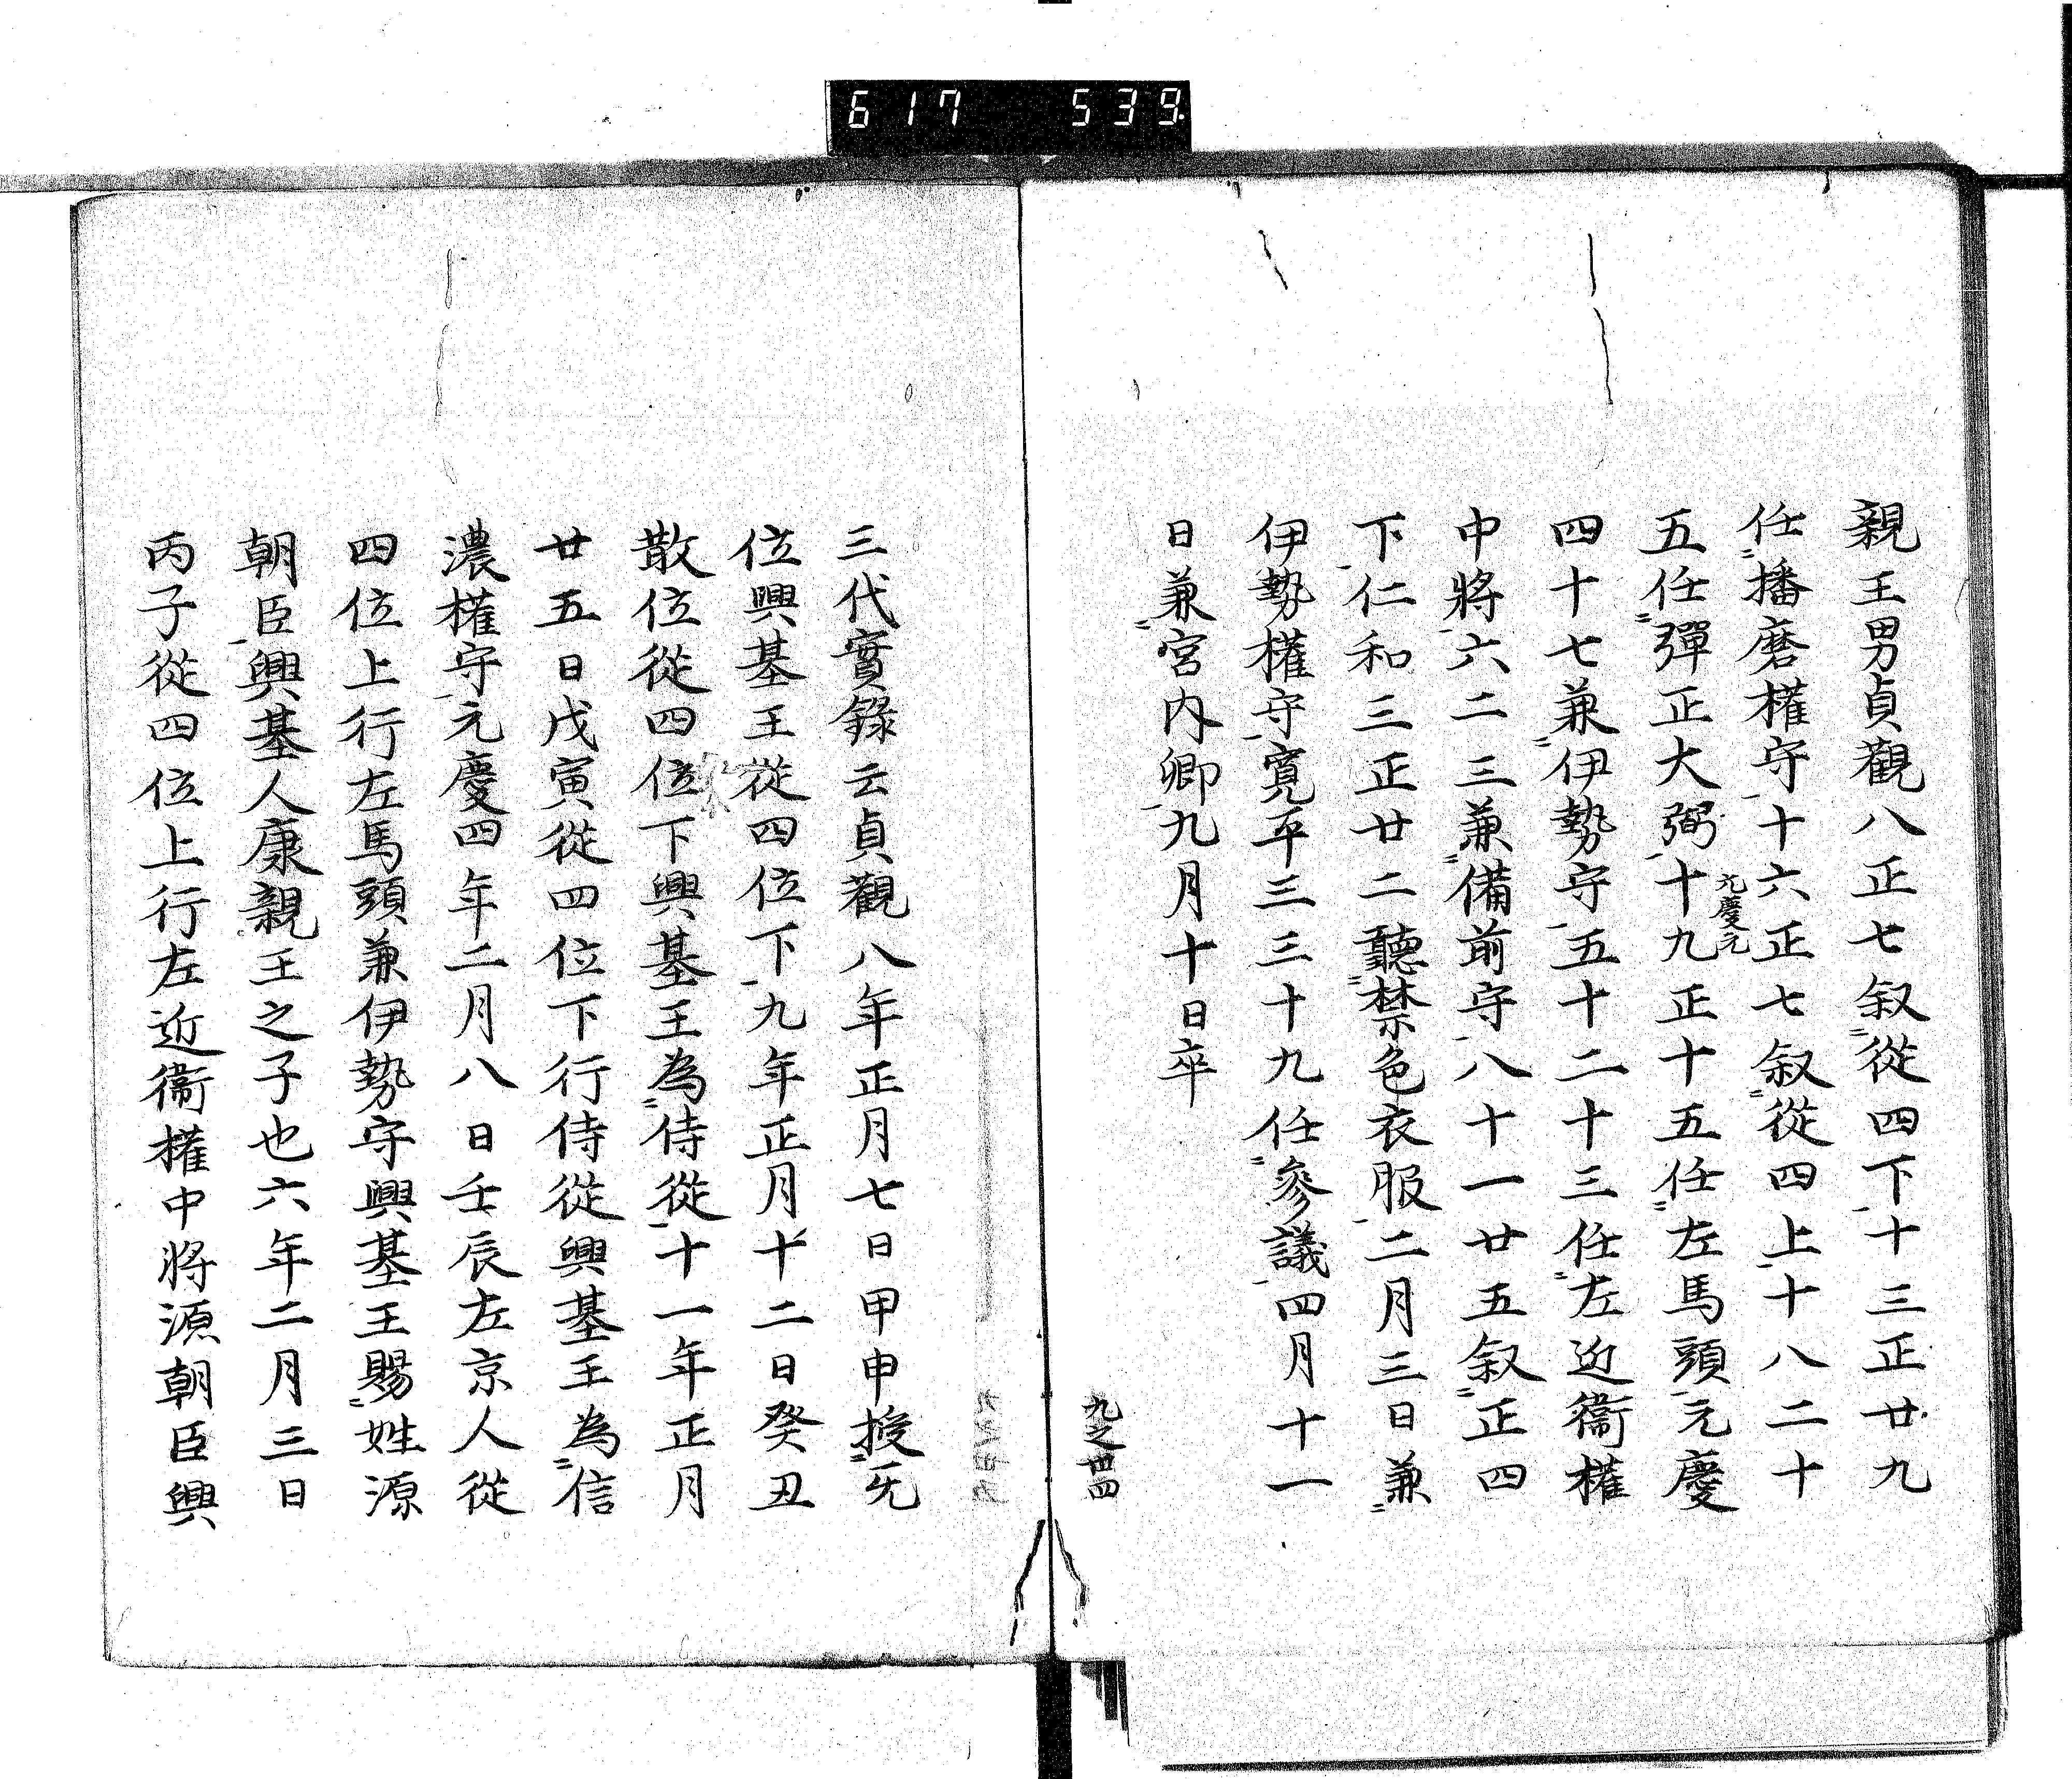 617 539
親王男貞觀八正七叙從四下十三正廿九
任播磨權守十六正七叙從四上十八二十
五任彈正大弼十九正十五任左馬頭元慶
元慶元
四十七兼伊勢守五十二十三任左近衞權
中將六二三兼備前守八十一廿五叙正四
下仁和三正廿二聽禁色衣服二月三日兼
伊勢權守寛平三三十九任參議四月十一
日兼宮内卿九月十日卒
九之卌四
三代實錄云貞觀八年正月七日甲申授无
位興基王從四位下九年正月十二日癸丑
散位從四位下興基王為侍從十一年正月
廿五日戊寅從四位下行侍從興基王為信
濃權守元慶四年二月八日壬辰左京人從
四位上行左馬頭兼伊勢守興基王賜姓源
朝臣興基人康親王之子也六年二月三日
丙子從四位上行左近衞權中將源朝臣興